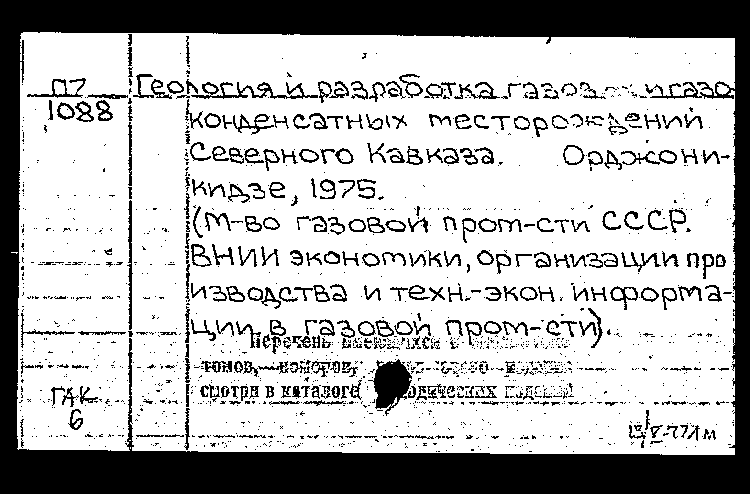 П7 Геология и разработка газовых и газо
1088 конденсатных месторождений
Северного Кавказа. Орджони-
кидзе, 1975.
(М-во газовой пром-сти СССР.
ВНИИ экономики, организации про
изводства и техн.-экон. информа-
ции в газовой пром-сти).
Перечень имеющихся в
томов, номеров, издания
смотри в каталоге периодических изданий
ГАК
6